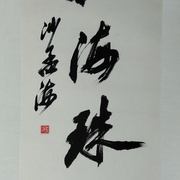 海珠
沙孟海